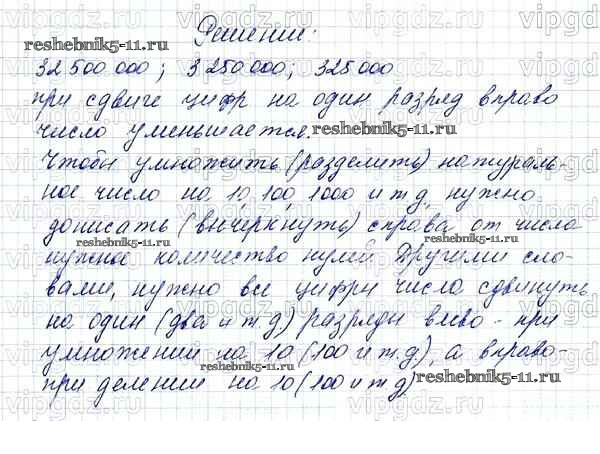 Решение:
32 500 000; 3 250 000; 325 000
при сдвиге цифр на один разряд вправо
число уменьшается.
Чтобы умножить (разделить) натураль-
ное число на 10, 100, 1000 и т.д, нужно
дописать (вычеркнуть) справа от числа
нужное количество нулей. Другими сло-
вами, нужно все цифры числа сдвинуть
на один (два и т.д) разряды влево - при
умножении на 10 (100 и т.д), а вправо-
при делении на 10 (100 и т.д)
reshebnik5-11.ru
reshebnik5-11.ru
reshebnik5-11.ru
reshebnik5-11.ru
reshebnik5-11.ru
reshebnik5-11.ru
vipgdz.ru